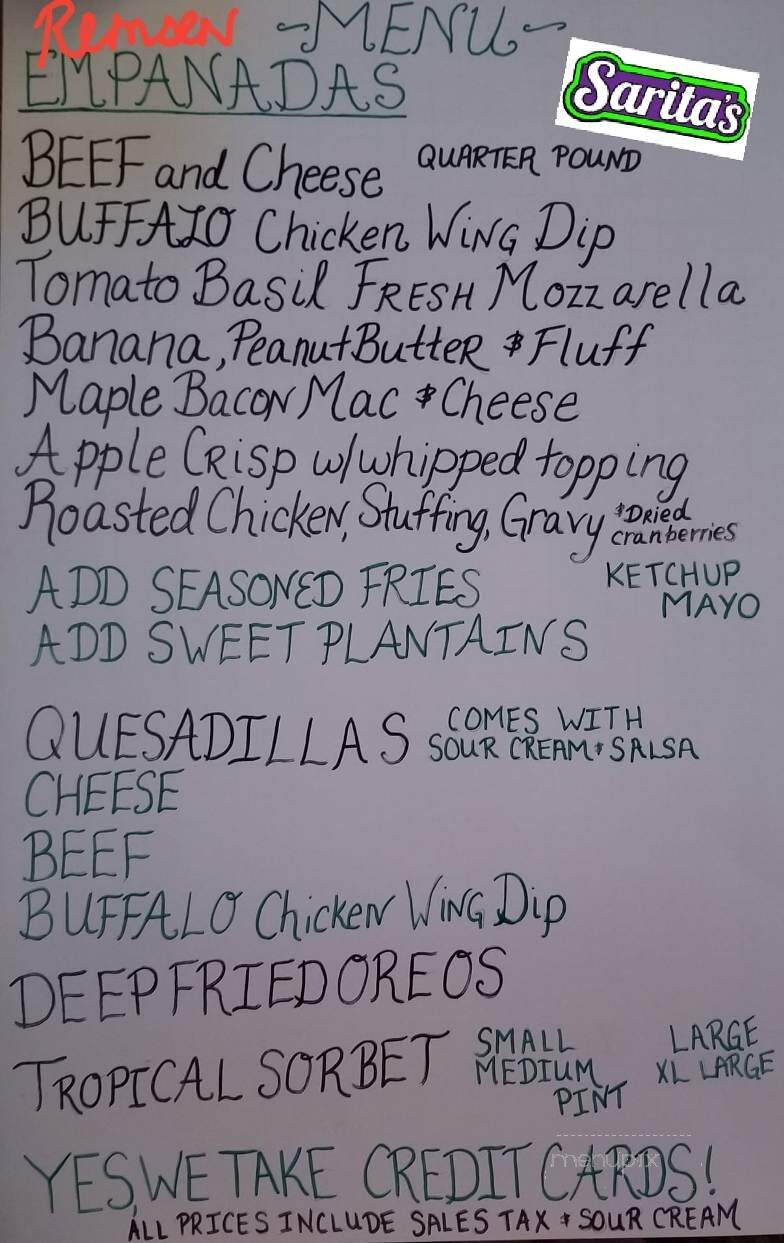 Remsen ~MENU~
EMPANADAS
Sarita's
BEEF and Cheese QUARTER POUND
BUFFALO Chicken WING Dip
Tomato Basil FRESH Mozzarella
Banana, Peanut Butter & Fluff
Maple Bacon Mac & Cheese
Apple Crisp w/whipped topping
Roasted Chicken, Stuffing, Gravy & Dried cranberries
ADD SEASONED FRIES
KETCHUP
MAYO
ADD SWEET PLANTAINS
QUESADILLAS COMES WITH
SOUR CREAM & SALSA
CHEESE
BEEF
BUFFALO Chicken Wing Dip
DEEP FRIED OREOS
TROPICAL SORBET SMALL LARGE
MEDIUM XL LARGE
PINT
YES, WE TAKE CREDIT CARDS!
menupix
ALL PRICES INCLUDE SALES TAX & SOUR CREAM